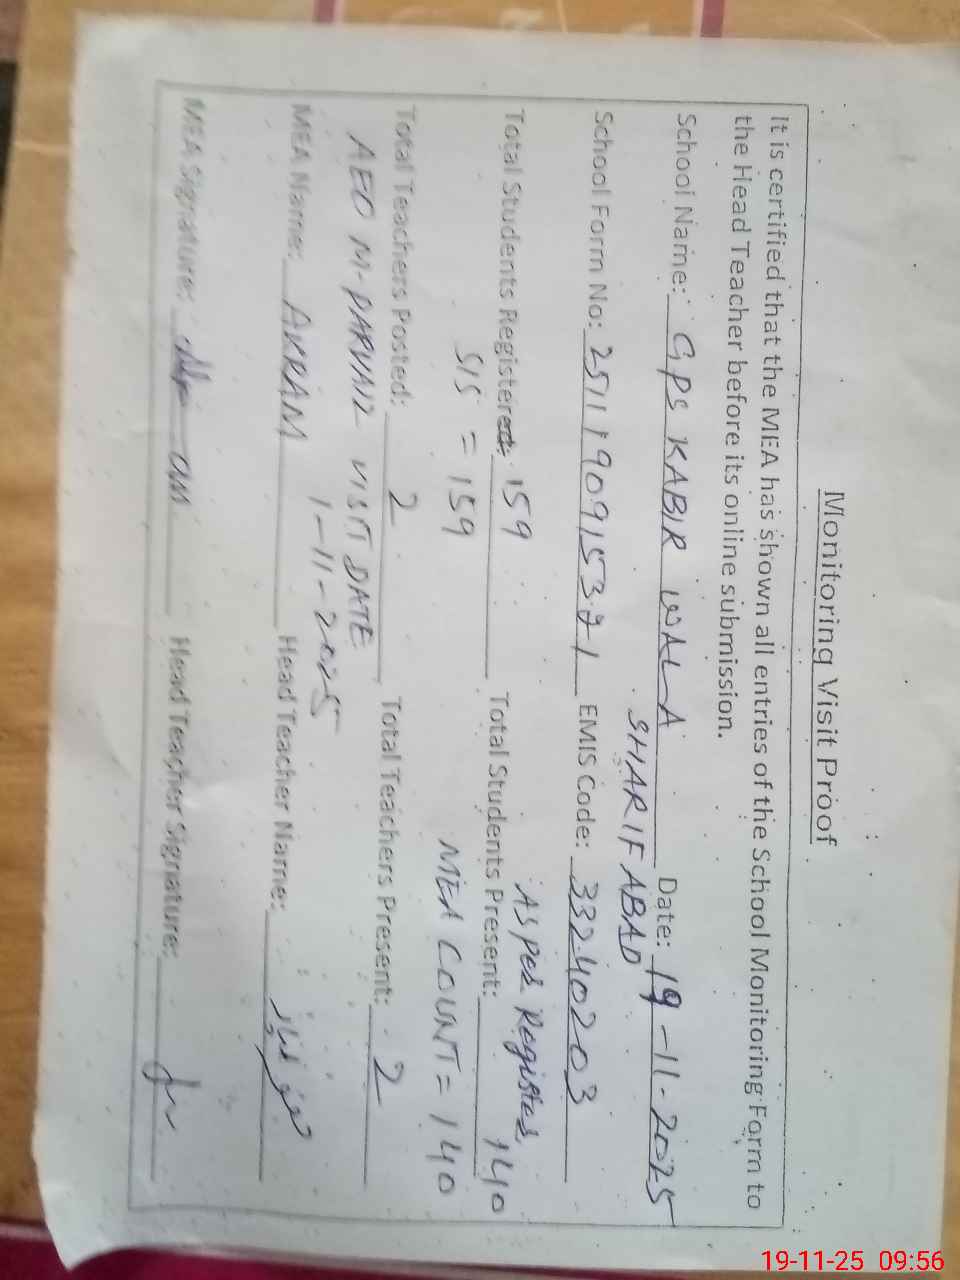 Monitoring Visit Proof
It is certified that the MEA has shown all entries of the School Monitoring Form to
the Head Teacher before its online submission.
School Name: GPS KABIR WALA Date: 19-11-2025
SHARIFABAD
School Form No: EMIS Code: 33240203
As per Register
Total Students Registered: 159 Total Students Present: 140
SIS = 159 MEA COUNT = 140
Total Teachers Posted: 2 Total Teachers Present: 2
AEO M-PARVAIZ VISIT DATE
1-11-2025
MEA Name: AKRAM Head Teacher Name:
MEA Signature: Head Teacher Signature:
19-11-25 09:56